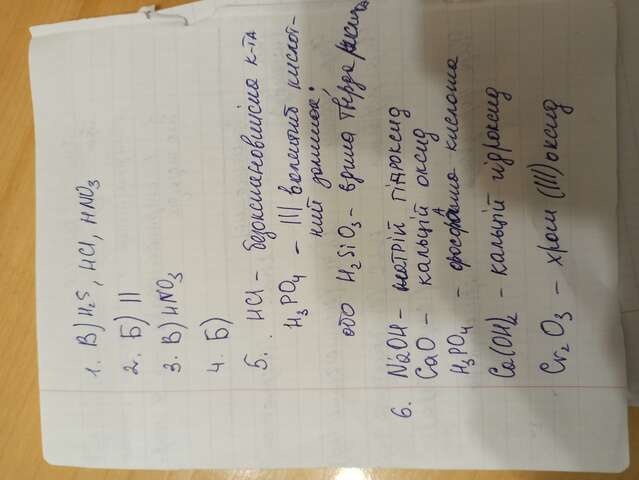 1. В) H₂S, HCl, HNO₃
2. Б) ||
3. В) HNO₃
4. Б)
5. HCl – безоксигеновмісна к-та
H₃PO₄ – III валентний кислот-
ний залишок.
або H₂SiO₃ – єдина тверда
6. NaOH – натрій гідроксид
CaO – кальцій оксид
H₃PO₄ – фосфатна кислота
Ca(OH)₂ – кальцій гідроксид
Cr₂O₃ – хром (III) оксид